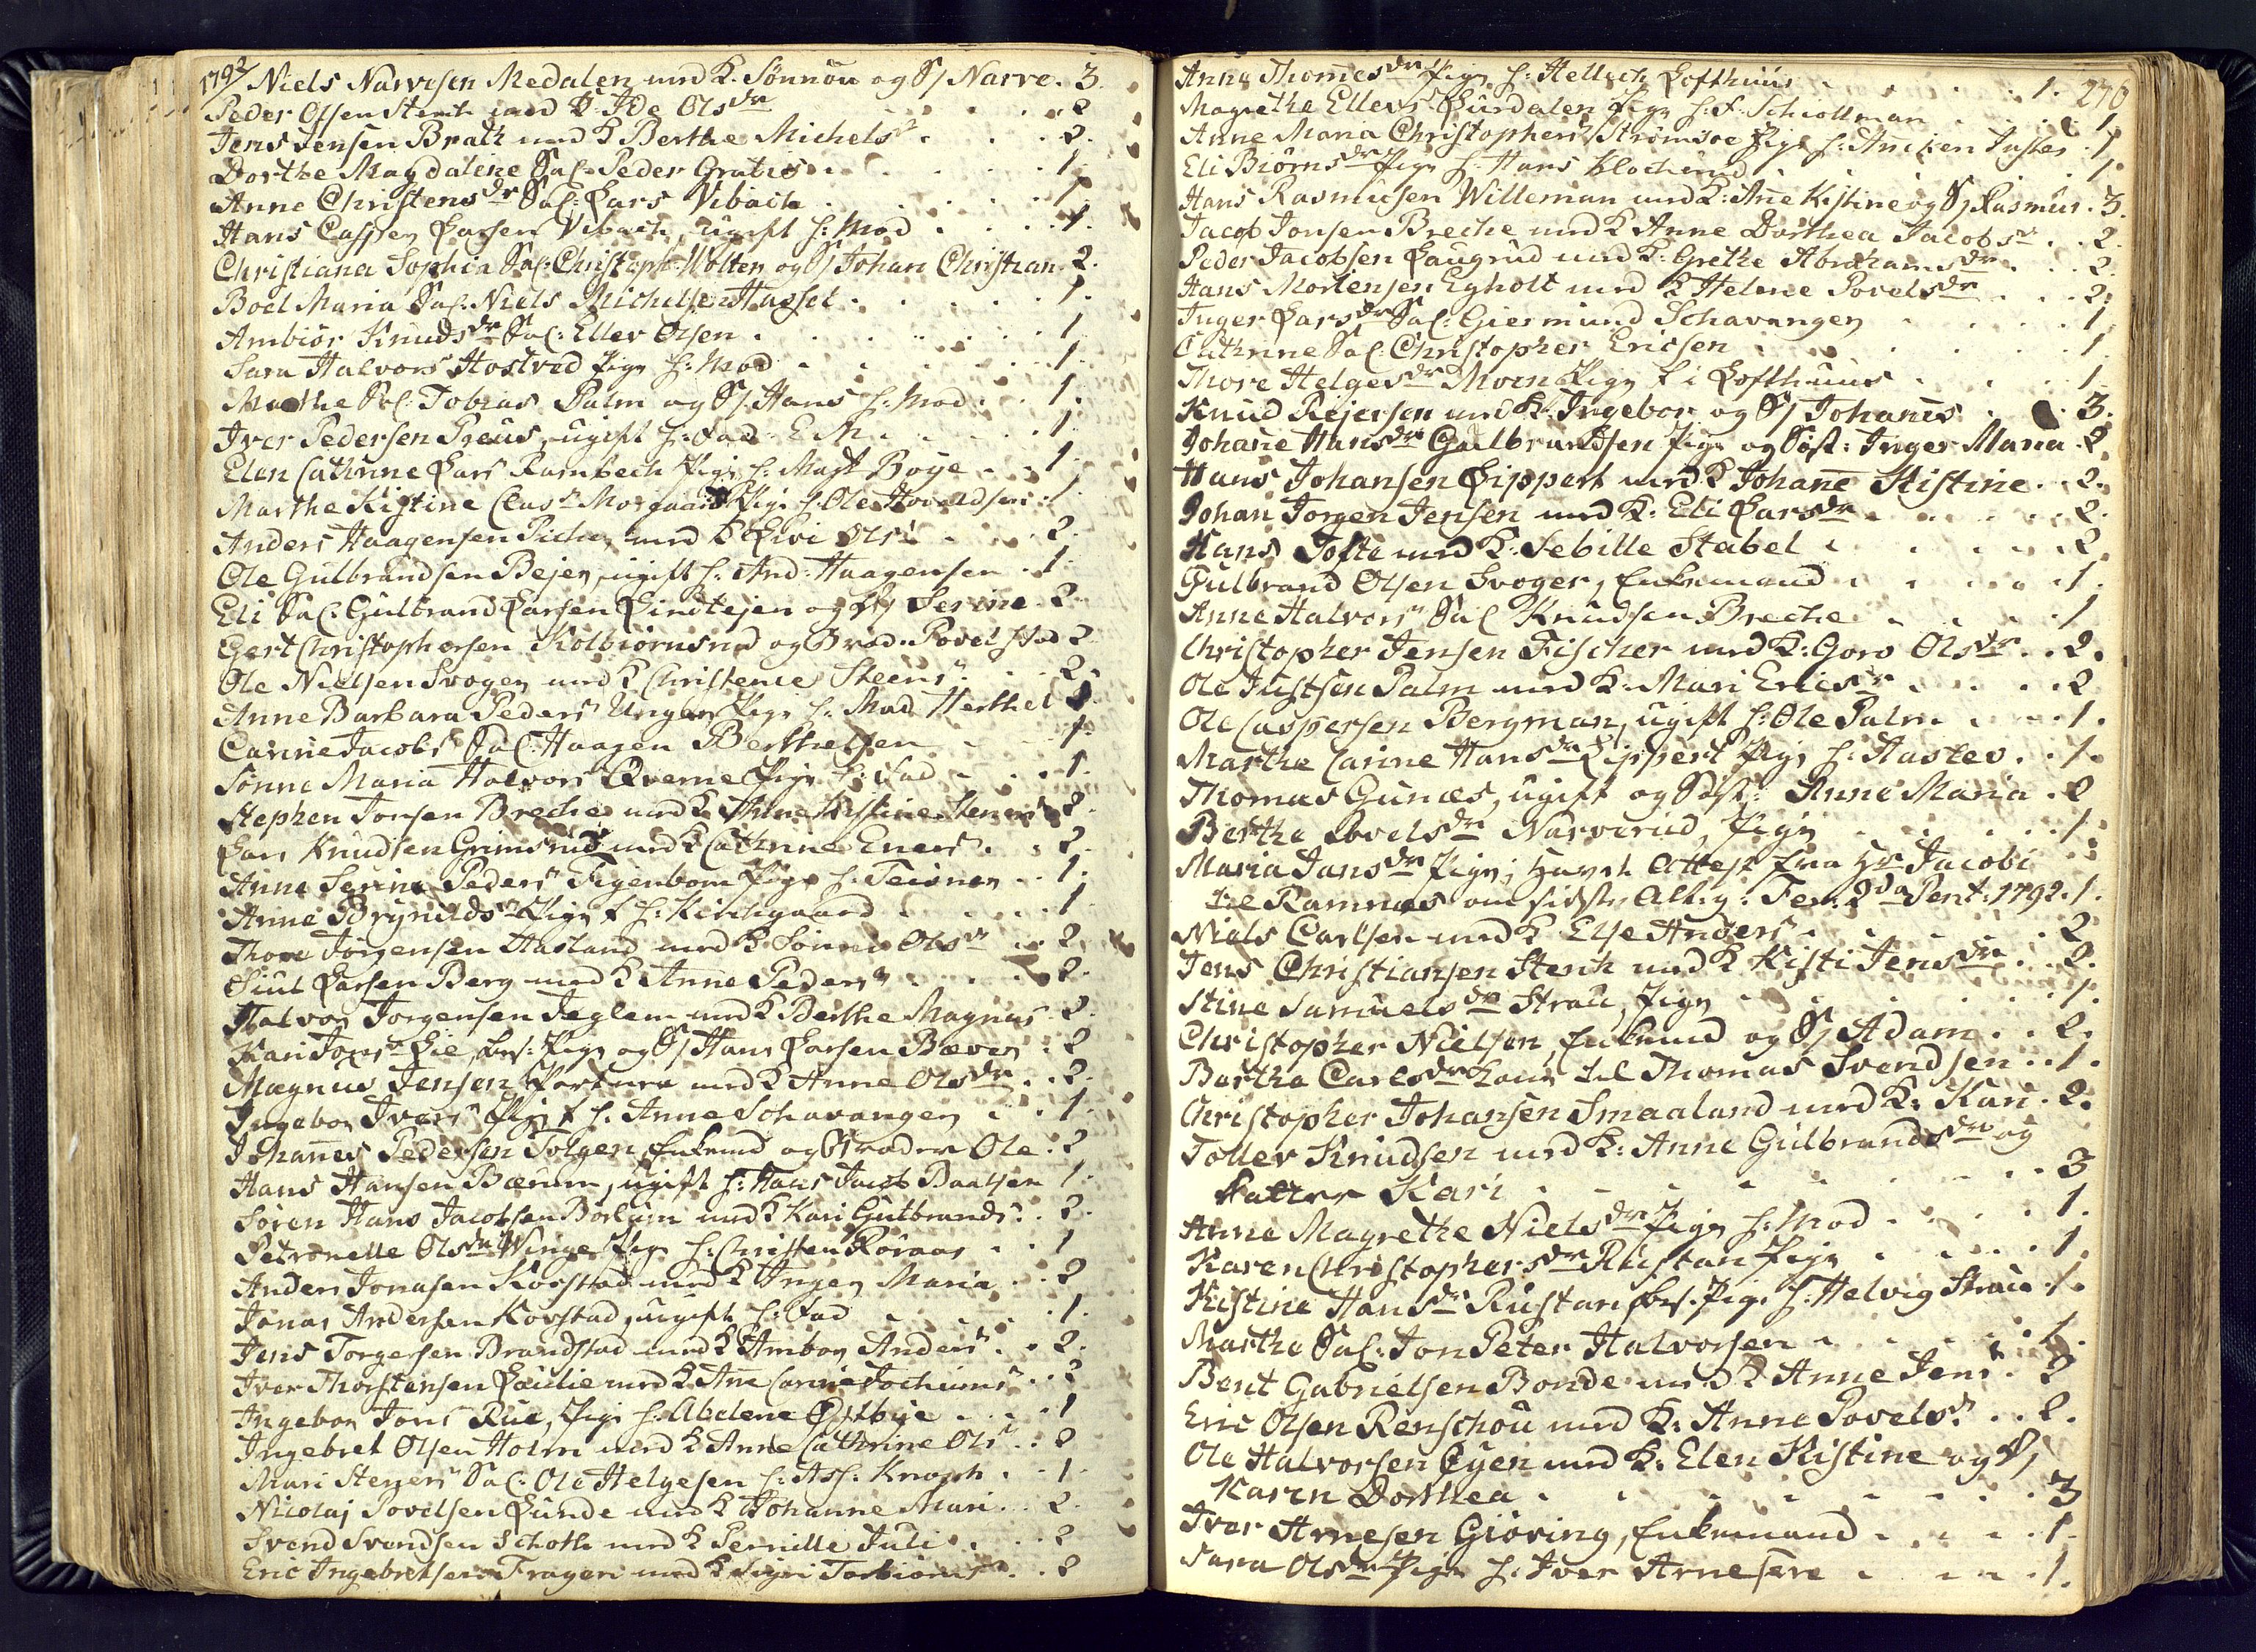 1792 Niels Narvesen Medalen med K. Sönnøu og S/ Narve. 3.
Peder Olsen Stent med K. Ide Ols dr . 2
Jens Jensen Brath med K Berthe Michels dr . 2.
Dorthe Magdalene Sal: Peder Gratis . 1.
Anne Christens dr Sal: Lars Vibach . 1.
Hans Casper Larsen Vibach, ugift h: Mod . 1.
Christiana Sophia Sal: Christoph: Wolter og S/ Johan Christian. 2.
Boel Maria Sal: Niels Michelsen Hassel . 1.
Ambiør Knuds dr Sal: Ellev Olsen . 1
Sara Halvors dr Hostved Pige h: Mod . 1.
Marthe Sal: Tobias Palm og S/ Hans h: Mod . 1.
Iver Pedersen Preus, ugift h: Fad . 1.
Elen Cathrine Lars dr Rambech Pige h: Magt Boye . 1
Marthe Kistine Clas dr Morgaard Pige h: Ole Hovaldsen . 1.
Anders Haagensen med K Livi Ols dr . 2.
Ole Gulbrandsen Bejer, ugift h: And: Haagensen . 1.
Eli Sal: Gulbrand Larsen Lindtejen og D/ Serine 2.
Gert Christophersen Kolbiørnsrud og Brod. Povel 2.
Ole Nielsen Svogen med K Christence Steens dr . 2.
Anne Barbara Peders dr Unger Pige h: Mad Herthel 1.
Canne Jacobs dr Sal: Haagen Berthelsen . 1.
Sönne Maria Halvors dr Qverne Pige h: Fad . 1.
Stephen Jonsen Breche med K Anne Kistine Steners dr 2.
Lars Knudsen Grimsrud med K Cathrine Eners dr . 2.
Anne Serine Peders dr Figenbom Pige h: Teisner . 1.
Anne Brynilds dr Pige h: Kirkegaard . 1
Thore Jörgensen Hasland med K Sönne Ols dr . 2.
Siul Larsen Berg med K Anne Peders dr . 2.
Halvor Jorgensen Teglem med K Berthe Magnus 2.
Kari Lie, bes: Pige og S/ Hans Larsen Bæver . 2
Magnus Jensen med K Anne Ols dr . 2.
Ingebor Ivers dr Pige h. Anne Schavangen . 1.
Johannes Pedersen Tolgen, Enkemd og Broder Ole . 2
Hans Hansen Bærum, ugift h: Hans Jacob Baatsen 1.
Sören Hans Jacobsen Börkum med K Kari Gulbrands dr . 2.
Petronelle Ols dr Winge Pige h: Christen Röraas . 1
Anders Jonasen Korstad med K Inger Maria . 2
Jonas Andersen Korstad, ugift h: Fad . 1.
Jens Torgersen Brandstad med K Ambor Anders dr . 2.
Iver Thorstensen Laulie med K Ane Carine Jochums dr . 2
Ingebor Jons dr Rue, Pige h: Abelene Östbye . 1
Ingebret Olsen Holm med K Anne Cathrine Ols dr . 2
Mari Steners dr Sal: Ole Helgesen h: Ass: Knoph . 1
Nicolaj Povelsen Lunde med K Johanne Mari . 2.
Svend Svendsen Schoth med K Pernille Juli . 2
Eric Ingebretsen Frogen med K Sigri Torbiörns dr . 2
Anne Thomes dr Pige h: Hellech Lofthuus . 1. 270
Magrethe Ellevs dr Lurdalen Pige h: F: Schiollman . 1
Anne Maria Christophers dr Strömsoe Pige h: Anchen Juster . 1
Eli Biörns dr Pige h: Hans Klocherud . 1.
Hans Rasmusen Willeman med K: Ane Kistine og S/ Rasmus . 3.
Jacob Jonsen Breche med K Anne Dorthea Jacobs dr . 2.
Peder Jacobsen Laugrud med K: Grethe Abrahams dr . 2.
Hans Mortensen Egholt med K Helene Povels dr . 2.
Inger Lars dr Sal: Giermund Schavangen . 1
Cathrine Sal: Christopher Ericsen . 1.
Thore Helges dr Moen Pige t: i Lofthuus . 1.
Knud Rejersen med K. Ingebor og S/ Johanes . 3.
Johane Hans dr Gulbrandsen Pige og Söst: Inger Maria . 2.
Hans Johansen Lippert med K Johane Kistine . 2.
Johan Jorgen Jensen med K. Eli Lars dr . 2.
Hans Tofte med K. Sebille Stabel . 2.
Gulbrand Olsen Svoger, Enkemand . 1.
Anne Halvors dr Sal Knudsen Breche . 1
Christopher Jensen Fischer med K: Goro Ols dr . 2.
Ole Justsen Palm med K. Mari Erics dr . 2
Ole Caspersen Bergman, ugift h: Ole Palm . 1.
Marthe Carine Hans dr Lippert Pige h: Hastev . 1.
Thomas Gunæs, ugift og Söst: Anne Maria . 2
Berthe Povels dr Narverud, Pige . 1.
Maria Jans dr Pige, havt Attest fra Hr Jacobi
til Ramnæs om sidste Alt: g: Fer: 2 da Pent: 1792. 1.
Niels Carlsen med K Else Anders dr . 2
Jens Christiansen Stenk med K Kisti Jens dr . 2.
Stine Samuels dr Strau, Pige . 1.
Christopher Nielsen, Enkemd og S/ Adam . 2.
Berthe Carls dr Kone til Thomas Svendsen . 1.
Christopher Johansen Smaaland med K: Kari . 2.
Tollev Knudsen med K: Anne Gulbrands dr og
Datter Kari . 3
Anne Magrethe Niels dr Pige h: Mod . 1.
Karen Christophers dr Rustan Pige . 1.
Kistine Hans dr Rustan bes. Pige h: Helvig Strau . 1.
Marthe Sal: Jon Peter Halvorsen . 1.
Bent Gabrielsen Bonde med K Anne Jens dr . 2
Eric Olsen Renschou med K: Anne Povels dr . 2.
Ole Halvorsen Öyen med K: Elen Kistine og D/
Karen Dorthea . 3
Iver Arnesen Giöving, Enkemand . 1.
Sara Ols dr Pige h: Iver Arnesen . 1.